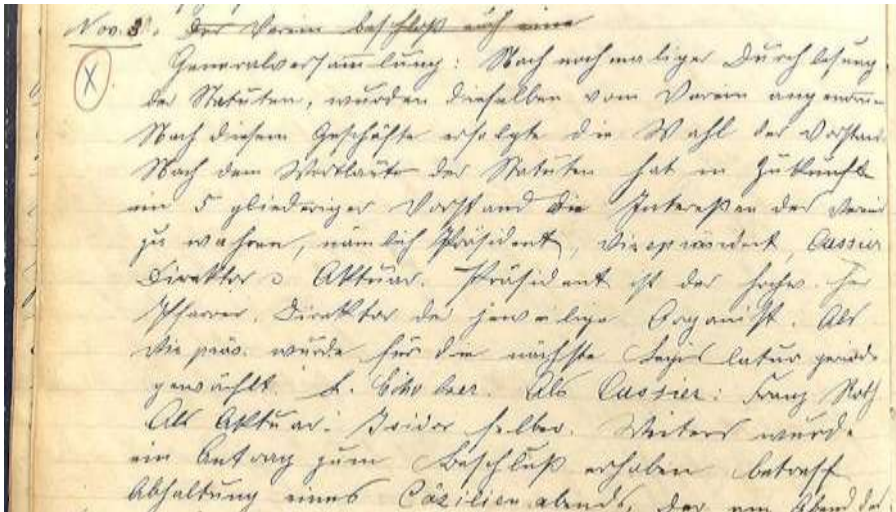 Nov. 3. Der Verein beschloß auch eine
Generalversammlung: Nach nochmaliger Durchlesung
der Statuten, wurden dieselben vom Verein angenom̄
Nach diesem Geschäfte erfolgte die Wahl des Vorstan
Nach dem Wortlaute der Statuten hat in Zukunft
ein 5 gliedriger Vorstand die Interessen des Verein
zu wahren, nämlich Präsident, Vicepräsident, Cassier
Direktor u Aktuar. Präsident ist der hochw. Her
Pfarrer. Direktor der jeweilige Organist. Als
Vizepräs. wurde für die nächste Legislaturperiode
gewählt: Als Cassier: Franz Roth
Als Aktuar: Isidor Weiters wurde
ein Antrag zum Beschluß erhoben betreff
Abhaltung eines Cäzilienabends, der am Abend des